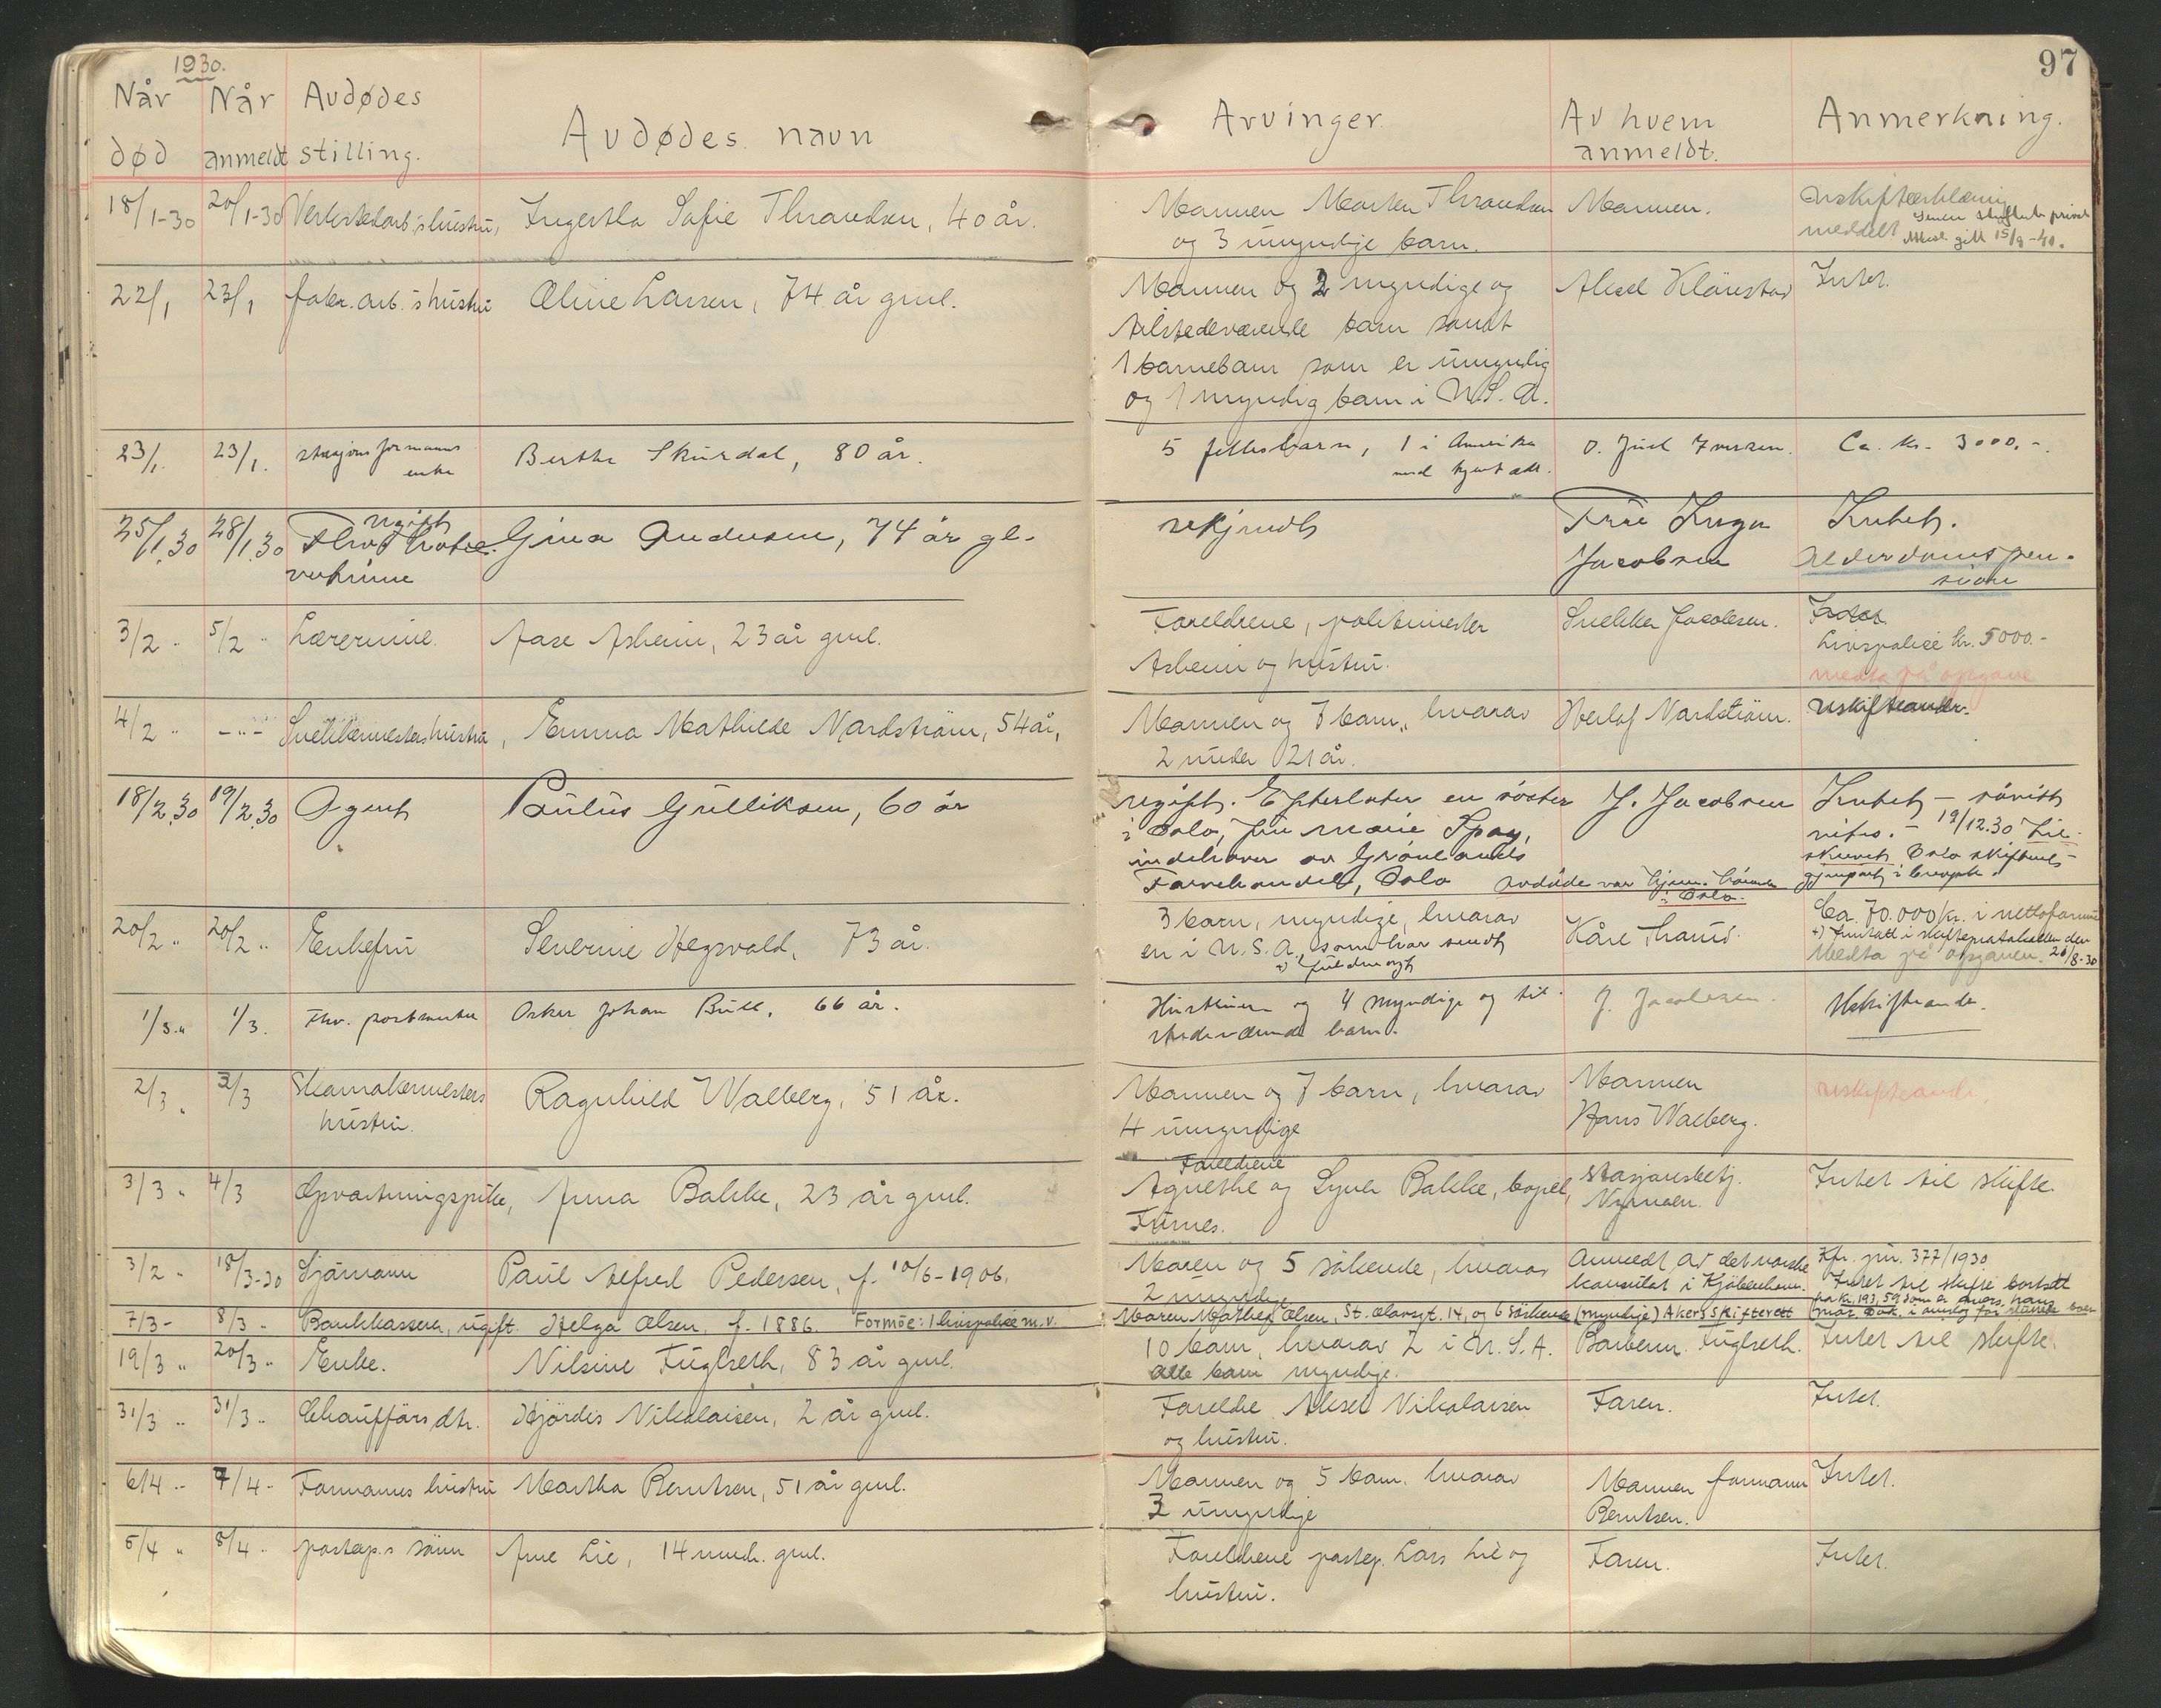 1930.
97
Når død
Når anmeldt
Avdødes stilling.
Avdødes navn
Arvinger.
Av hvem anmeldt.
Anmerkning.
18/1-30 20/1-30 Verkstedarb.s hustru, Ingertha Sofie Thrandsen, 40 år.
Mannen Morten Thrandsen
og 3 umyndige barn.
Mannen.
Uskifteerklæring
meddelt
22/1 23/1 fabr. arb.'s hustru Oline Larsen, 74 år gml.
Mannen og 2 myndige og
tilstedeværende barn samt
1 barnebarn som er umyndig
og 1 myndig barn i U.S.A.
Aksel
Intet.
23/1. 23/1. stasjonsformanns
enke
Berthe Skurdal, 80 år.
5 fellesbarn, 1 i Amerika
med kjent adr.
O. Juel Iversen.
Ca. kr. 3000,-.
25/1.30 28/1.30 ugift
Gina Andersen, 74 år gl.
ukjendt
Frue Inga
Jacobsen
Intet.
Alderdomspen-
sion
3/2 " 5/2 " Lærerinne. Aase Asheim, 23 år gml.
Foreldrene, politimester
Asheim og hustru.
Snekker Jacobsen.
Intet.
Livspolise kr. 5000.-
medta på opgave
4/2 " -"- Snekkermesters hustru, Emma Mathilde Nordström, 54 år,
Mannen og 7 barn, hvorav
2 under 21 år.
Herlof Nordström.
Uskifteandr.
18/2.30 19/2.30 Agent Paulus Gulliksen, 60 år
Ugift. Efterlater en søster
i Oslo, fru Marie Spay,
indehaver av Grønlands
Farvehandel, Oslo
avdøde var hjem. hørende
i Oslo.
J. Jacobsen
Intet - såvidt
vites. - 19/12.30 Til-
skrevet Oslo skifteret -
gjenpart i brevpk.
20/2 " 20/2 " Enkefru Severine Hegsvold, 73 år.
3 barn, myndige, hvorav
en i U.S.A., som har sendt
x) fuldmagt
Kåre Thaus.
Ca. 70.000 kr. i nettoformue
+) Inntatt i skifteprotokollen den
Medta på opgaven. 20/8-30
1/3 " 1/3. Fhv. postmester Oskar Johan Bull, 66 år.
Hustruen og 4 myndige og til-
stedeværende barn.
J. Jacobsen.
Uskifteande.
2/3 " 3/3 Skomakermesters
hustru.
Ragnhild Walberg, 51 år.
Mannen og 7 barn, hvorav
4 umyndige
Mannen
Hans Walberg.
uskifteande.
3/3 " 4/3 Opvartningspike, Anna Bakke, 23 år gml.
Foreldrene
Agnethe og Syver Bakke, bopel,
Furnes.
Stasjonsbetj.
Nymoen.
Intet til skifte.
3/2 " 18/3-30 Sjömann Paul Alfred Pedersen, f. 10/6-1906.
Moren og 5 söskende, hvorav
2 umyndige
Anmeldt av det norske
konsulat i Kjöbenhavn.
Kfr. jnr. 377/1930.
Intet til skifte bortsett
fra kr. 193,59 som er
7/3 - 8/3 " Bankkasserer, ugift. Helga Olsen, f. 1886. Formue: 1 livspolise m.v.
Moren Mathea Olsen, St. Olavsgt. 14, og 6 söskende (myndige) Akers skifterett
19/3 " 20/3 " Enke. Nilsine Fuglseth, 83 år gml.
10 barn, hvorav 2 i U.S.A.
Alle barn myndige.
Barberm. Fuglseth.
Intet til skifte.
31/3 " 31/3 " Chaufförs dtr. Hjördis Nikolaisen, 2 år gml.
Foreldre Aksel Nikolaisen
og hustru.
Faren.
Intet.
6/4 " 7/4 - Formanns hustru Martha Berntsen, 51 år gml.
Mannen og 5 barn, hvorav
3 umyndige
Mannen formann
Berntsen.
Intet.
5/4 " 8/4 " postexp.s sönn Arne Lie, 14 mndr. gml.
Foreldrene postexp. Lars Lie og
hustru.
Faren.
Intet.